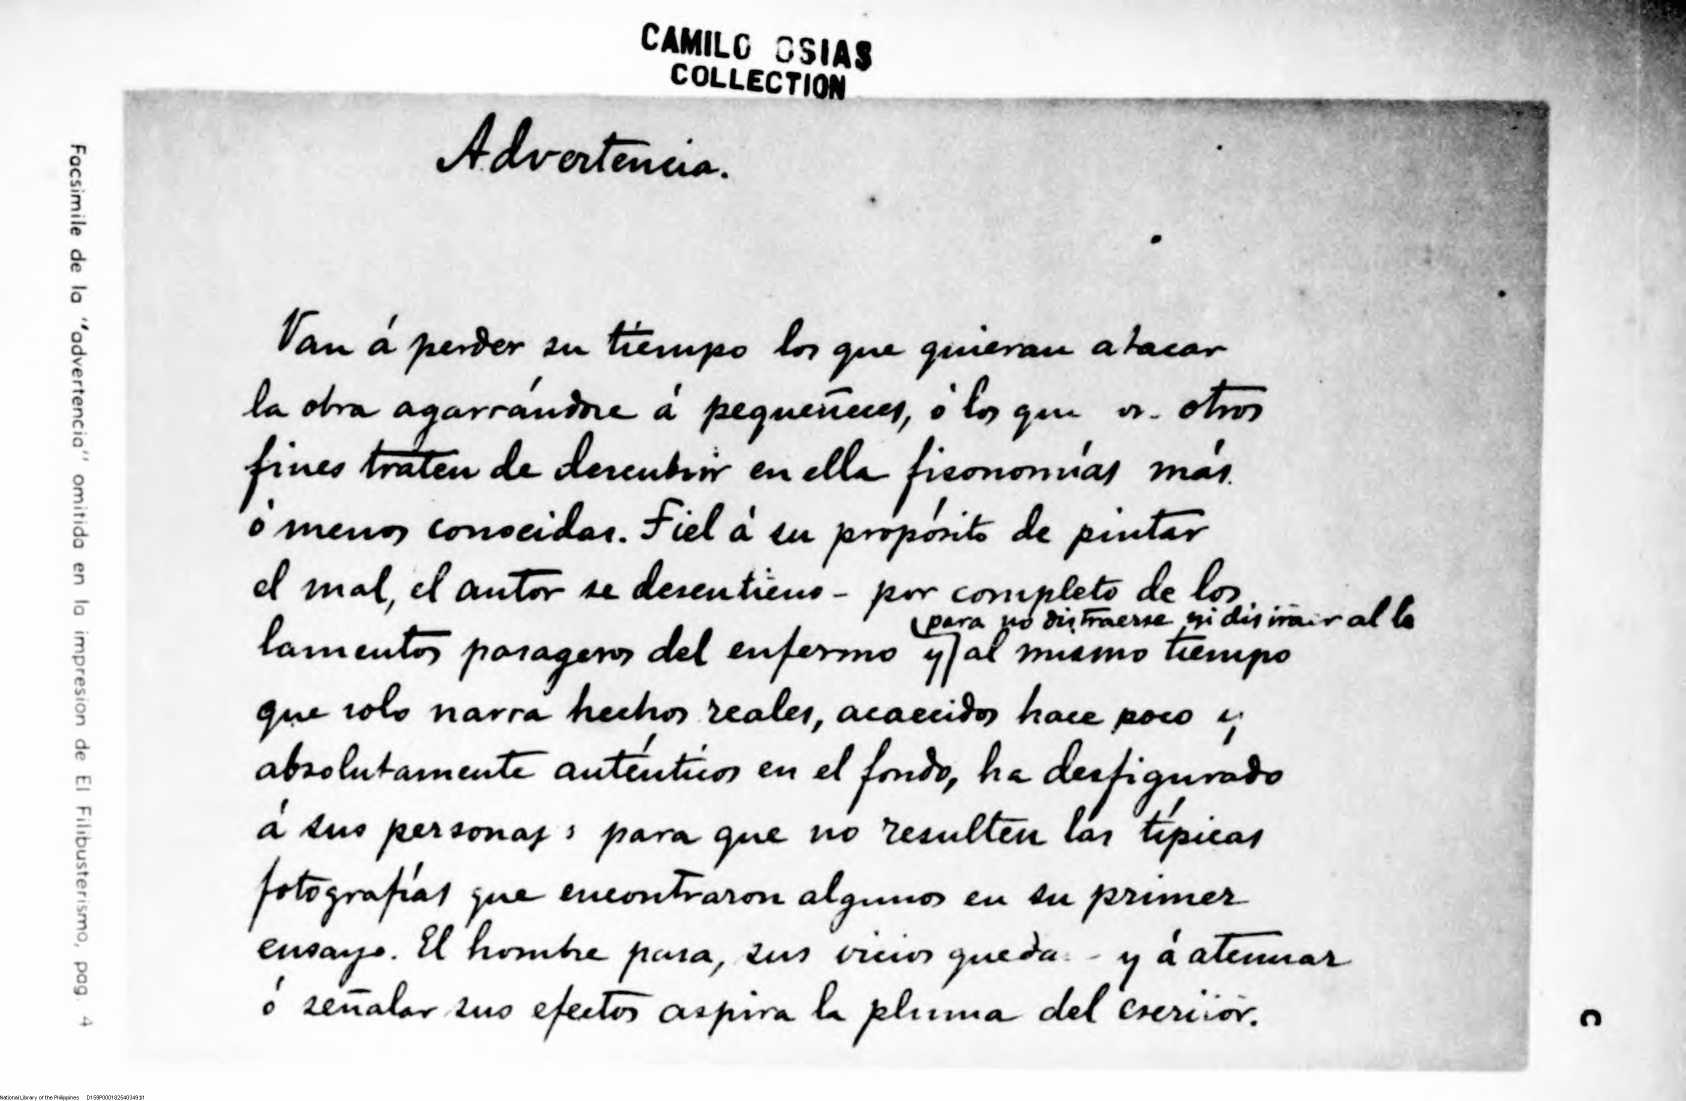 CAMILO OSIAS
COLLECTION
Advertencia.
Van á perder su tiempo los que quieran atacar
la obra agarrándose á pequeñeces, ó los que otros
fines traten de descubrir en ella fisonomías más
ó menos conocidas. Fiel á su propósito de pintar
el mal, el autor se desentiende por completo de los
para no distraerse ni distraer al
lamentos pasageros del enfermo y al mismo tiempo
que solo narra hechos reales, acaecidos hace poco y
absolutamente auténticos en el fondo, ha desfigurado
á sus personajes para que no resulten las típicas
fotografías que encontraron algunos en su primer
ensayo. El hombre pasa, sus vicios quedan y á atenuar
ó señalar sus efectos aspira la pluma del escritor.
Facsimile de la "advertencia" omitida en la impresion de El Filibusterismo, pag. 4
C
National Library of the Philippines